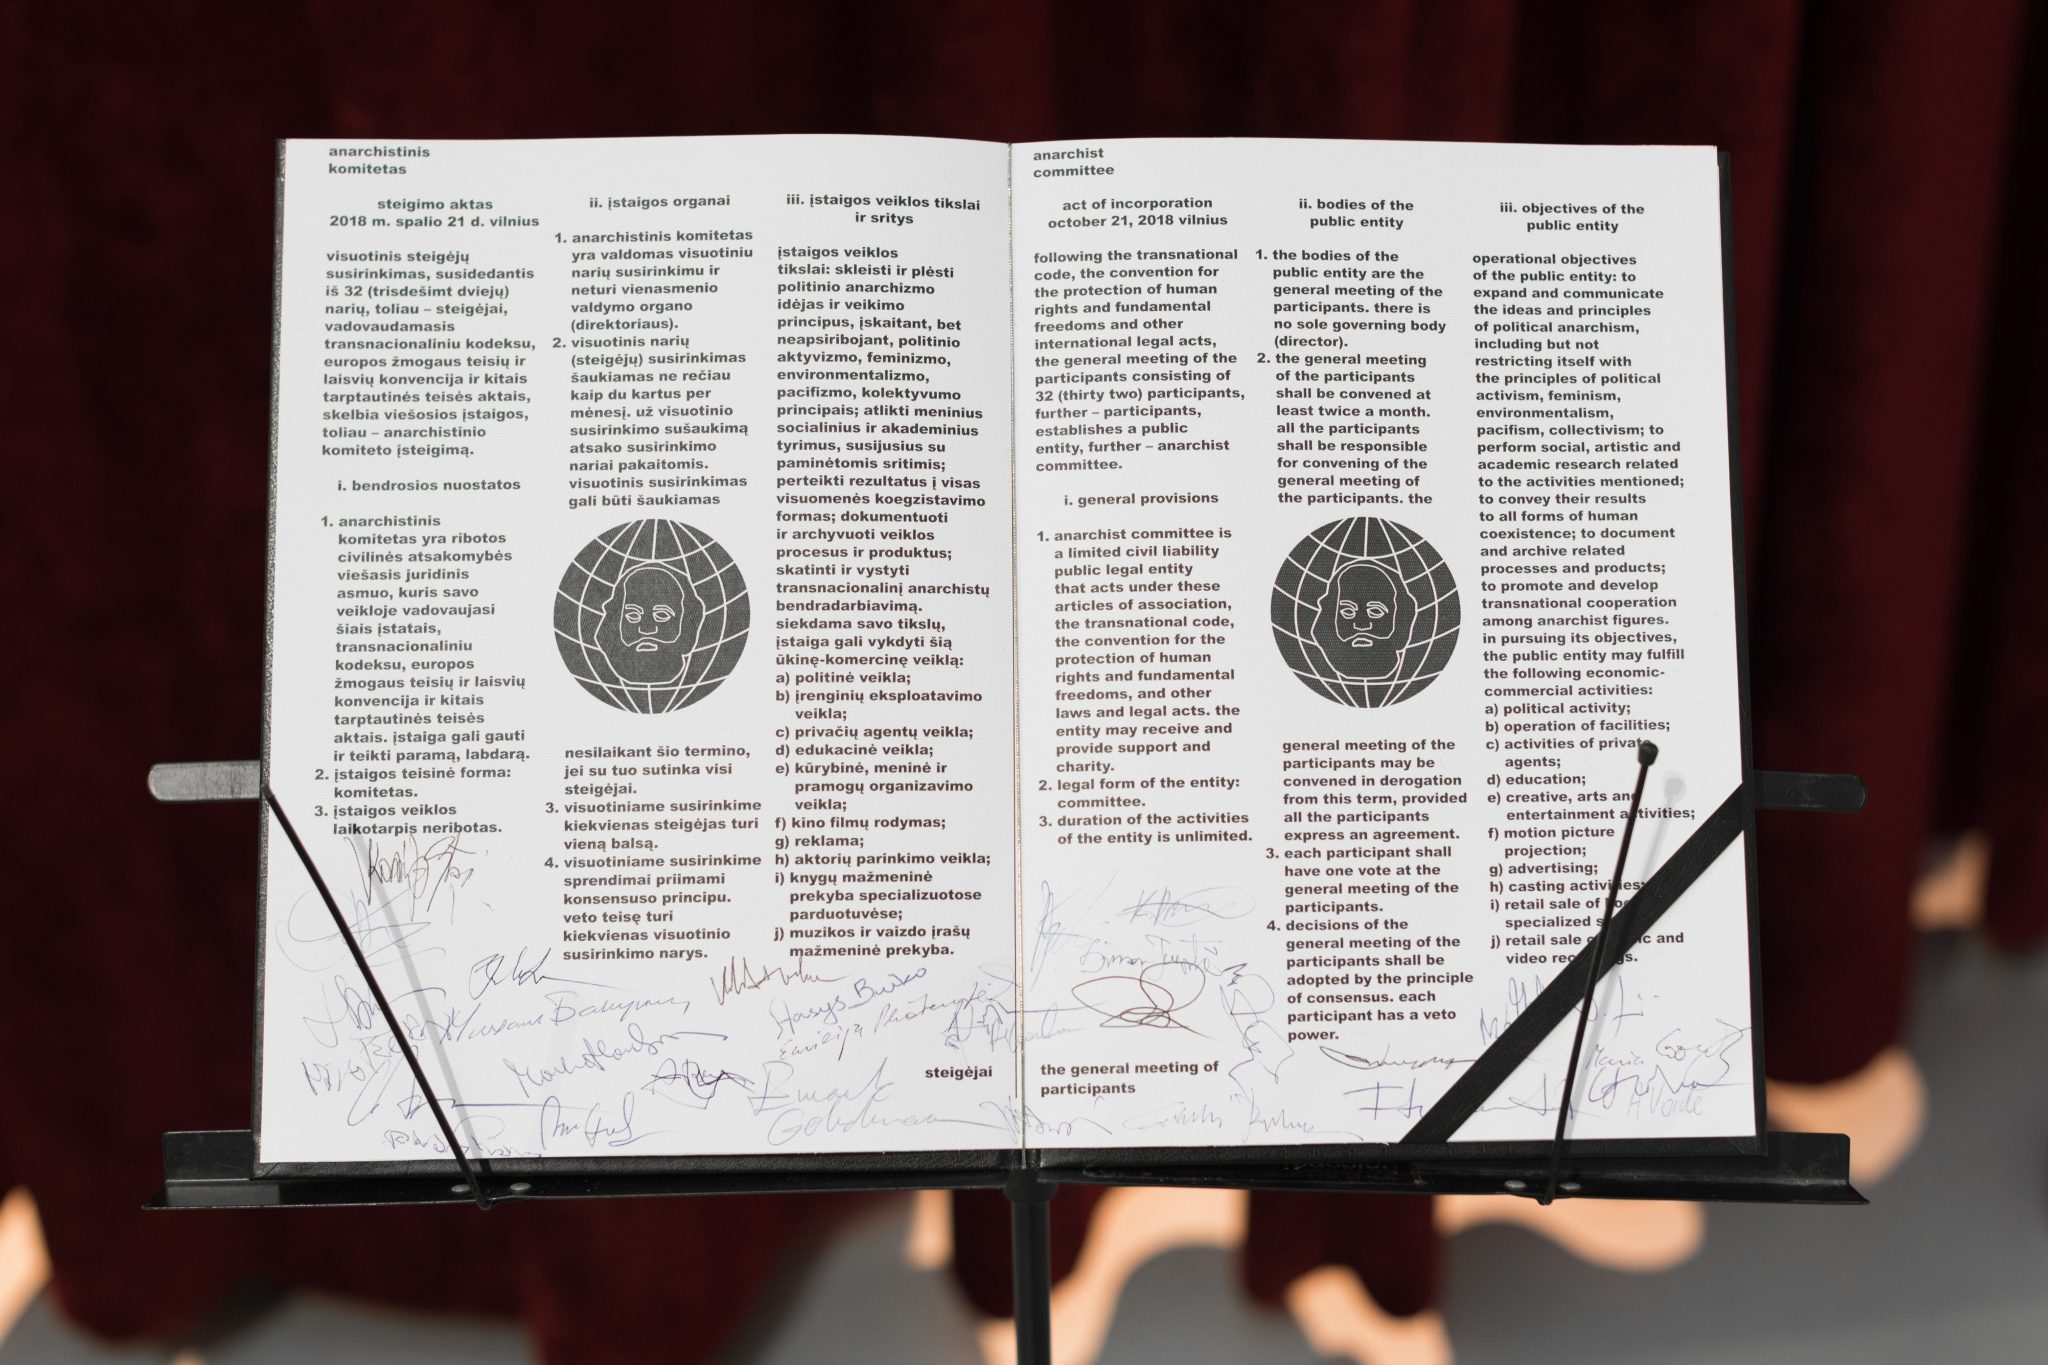 anarchistinis
komitetas
steigimo aktas
2018 m. spalio 21 d. vilnius
visuotinis steigėjų
susirinkimas, susidedantis
iš 32 (trisdešimt dviejų)
narių, toliau – steigėjai,
vadovaudamasis
transnacionaliniu kodeksu,
europos žmogaus teisių ir
laisvių konvencija ir kitais
tarptautinės teisės aktais,
skelbia viešosios įstaigos,
toliau – anarchistinio
komiteto įsteigimą.
i. bendrosios nuostatos
1. anarchistinis
komitetas yra ribotos
civilinės atsakomybės
viešasis juridinis
asmuo, kuris savo
veikloje vadovaujasi
šiais įstatais,
transnacionaliniu
kodeksu, europos
žmogaus teisių ir laisvių
konvencija ir kitais
tarptautinės teisės
aktais. įstaiga gali gauti
ir teikti paramą, labdarą.
2. įstaigos teisinė forma:
komitetas.
3. įstaigos veiklos
laikotarpis neribotas.
ii. įstaigos organai
1. anarchistinis komitetas
yra valdomas visuotiniu
narių susirinkimu ir
neturi vienasmenio
valdymo organo
(direktoriaus).
2. visuotinis narių
(steigėjų) susirinkimas
šaukiamas ne rečiau
kaip du kartus per
mėnesį. už visuotinio
susirinkimo sušaukimą
atsako susirinkimo
nariai pakaitomis.
visuotinis susirinkimas
gali būti šaukiamas
nesilaikant šio termino,
jei su tuo sutinka visi
steigėjai.
3. visuotiniame susirinkime
kiekvienas steigėjas turi
vieną balsą.
4. visuotiniame susirinkime
sprendimai priimami
konsensuso principu.
veto teisę turi
kiekvienas visuotinio
susirinkimo narys.
iii. įstaigos veiklos tikslai
ir sritys
įstaigos veiklos
tikslai: skleisti ir plėsti
politinio anarchizmo
idėjas ir veikimo
principus, įskaitant, bet
neapsiribojant, politinio
aktyvizmo, feminizmo,
environmentalizmo,
pacifizmo, kolektyvumo
principais; atlikti meninius
socialinius ir akademinius
tyrimus, susijusius su
paminėtomis sritimis;
perteikti rezultatus į visas
visuomenės koegzistavimo
formas; dokumentuoti
ir archyvuoti veiklos
procesus ir produktus;
skatinti ir vystyti
transnacionalinį anarchistų
bendradarbiavimą.
siekdama savo tikslų,
įstaiga gali vykdyti šią
ūkinę-komercinę veiklą:
a) politinė veikla;
b) įrenginių eksploatavimo
veikla;
c) privačių agentų veikla;
d) edukacinė veikla;
e) kūrybinė, meninė ir
pramogų organizavimo
veikla;
f) kino filmų rodymas;
g) reklama;
h) aktorių parinkimo veikla;
i) knygų mažmeninė
prekyba specializuotose
parduotuvėse;
j) muzikos ir vaizdo įrašų
mažmeninė prekyba.
steigėjai
anarchist
committee
act of incorporation
october 21, 2018 vilnius
following the transnational
code, the convention for
the protection of human
rights and fundamental
freedoms and other
international legal acts,
the general meeting of the
participants consisting of
32 (thirty two) participants,
further – participants,
establishes a public
entity, further – anarchist
committee.
i. general provisions
1. anarchist committee is
a limited civil liability
public legal entity
that acts under these
articles of association,
the transnational code,
the convention for the
protection of human
rights and fundamental
freedoms, and other
laws and legal acts. the
entity may receive and
provide support and
charity.
2. legal form of the entity:
committee.
3. duration of the activities
of the entity is unlimited.
the general meeting of
participants
ii. bodies of the
public entity
1. the bodies of the
public entity are the
general meeting of the
participants. there is
no sole governing body
(director).
2. the general meeting
of the participants
shall be convened at
least twice a month.
all the participants
shall be responsible
for convening of the
general meeting of
the participants. the
general meeting of the
participants may be
convened in derogation
from this term, provided
all the participants
express an agreement.
3. each participant shall
have one vote at the
general meeting of the
participants.
4. decisions of the
general meeting of the
participants shall be
adopted by the principle
of consensus. each
participant has a veto
power.
iii. objectives of the
public entity
operational objectives
of the public entity: to
expand and communicate
the ideas and principles
of political anarchism,
including but not
restricting itself with
the principles of political
activism, feminism,
environmentalism,
pacifism, collectivism; to
perform social, artistic and
academic research related
to the activities mentioned;
to convey their results
to all forms of human
coexistence; to document
and archive related
processes and products;
to promote and develop
transnational cooperation
among anarchist figures.
in pursuing its objectives,
the public entity may fulfill
the following economic-
commercial activities:
a) political activity;
b) operation of facilities;
c) activities of private
agents;
d) education;
e) creative, arts and
entertainment activities;
f) motion picture
projection;
g) advertising;
h) casting activities;
i) retail sale of
specialized
j) retail sale and
video